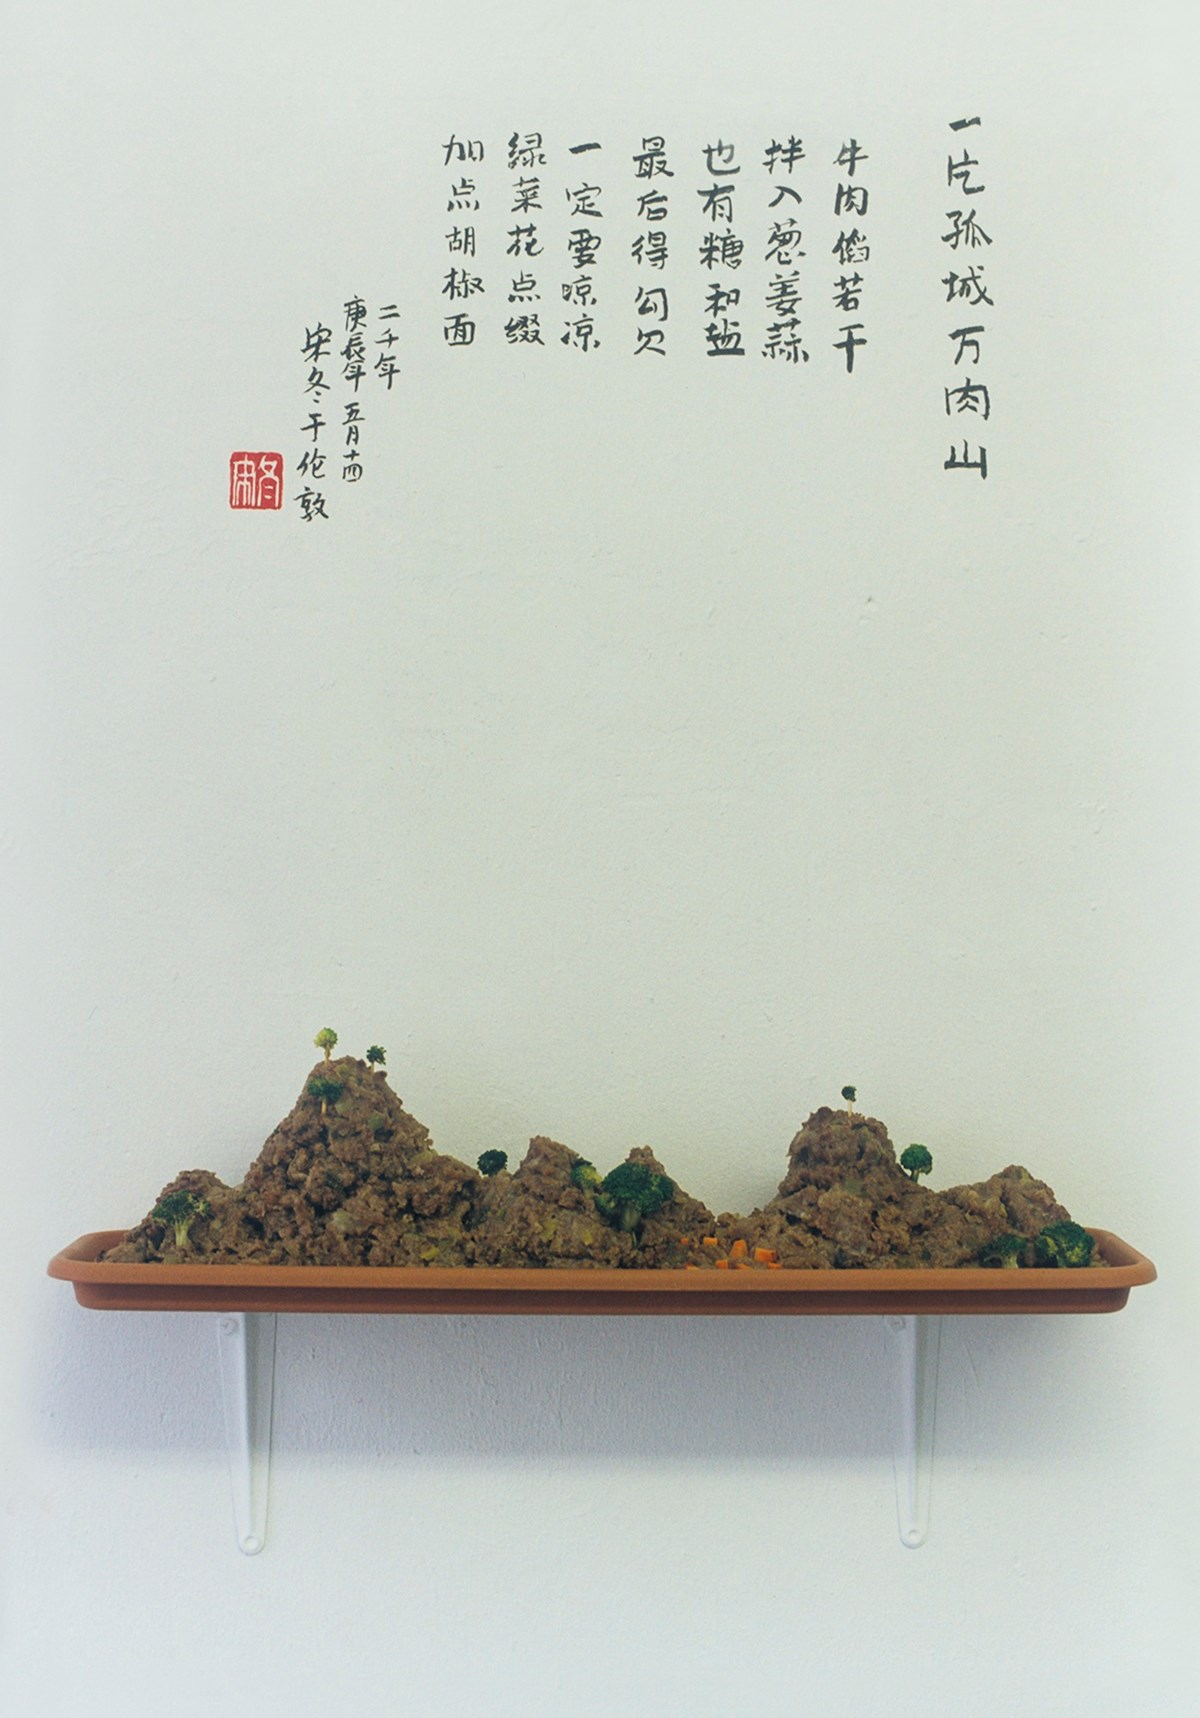 一片孤城万肉山
牛肉馅若干
拌入葱姜蒜
也有糖和盐
最后得勾欠
一定要晾凉
绿菜花点缀
加点胡椒面
二千年
庚辰年五月十四
宋冬于伦敦
宋冬